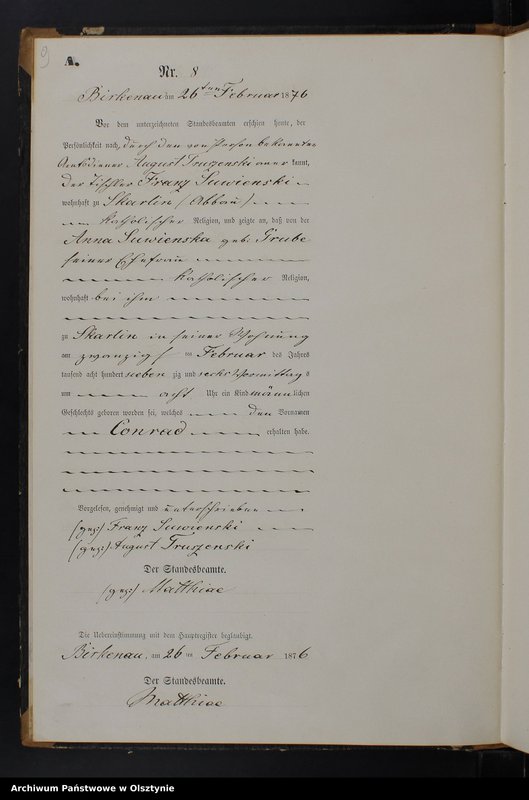 9
A.
Nr. 8
Birkenau am 26ten Februar 1876
Vor dem unterzeichneten Standesbeamten erschien heute, der
Persönlichkeit nach, durch den von Person bekannten
Amtsdiener August Truszenski anerkannt,
der Tischler Franz Suwienski
wohnhaft zu Skarlin (Abbau)
katholischer Religion, und zeigte an, daß von der
Anna Suwienska geb. Grube
seiner Ehefrau
katholischer Religion,
wohnhaft bei ihm
zu Skarlin in seiner Wohnung
am zwanzig ten Februar des Jahres
tausend acht hundert sieben zig und sechs Vormittags
um acht Uhr ein Kind männlichen
Geschlechts geboren worden sei, welches den Vornamen
Conrad erhalten habe.
Vorgelesen, genehmigt und unterschrieben
(gez:) Franz Suwienski
(gez:) August Truszenski
Der Standesbeamte.
(gez:) Matthiae
Die Uebereinstimmung mit dem Hauptregister beglaubigt.
Birkenau, am 26 ten Februar 1876
Der Standesbeamte.
Matthiae
Archiwum Państwowe w Olsztynie